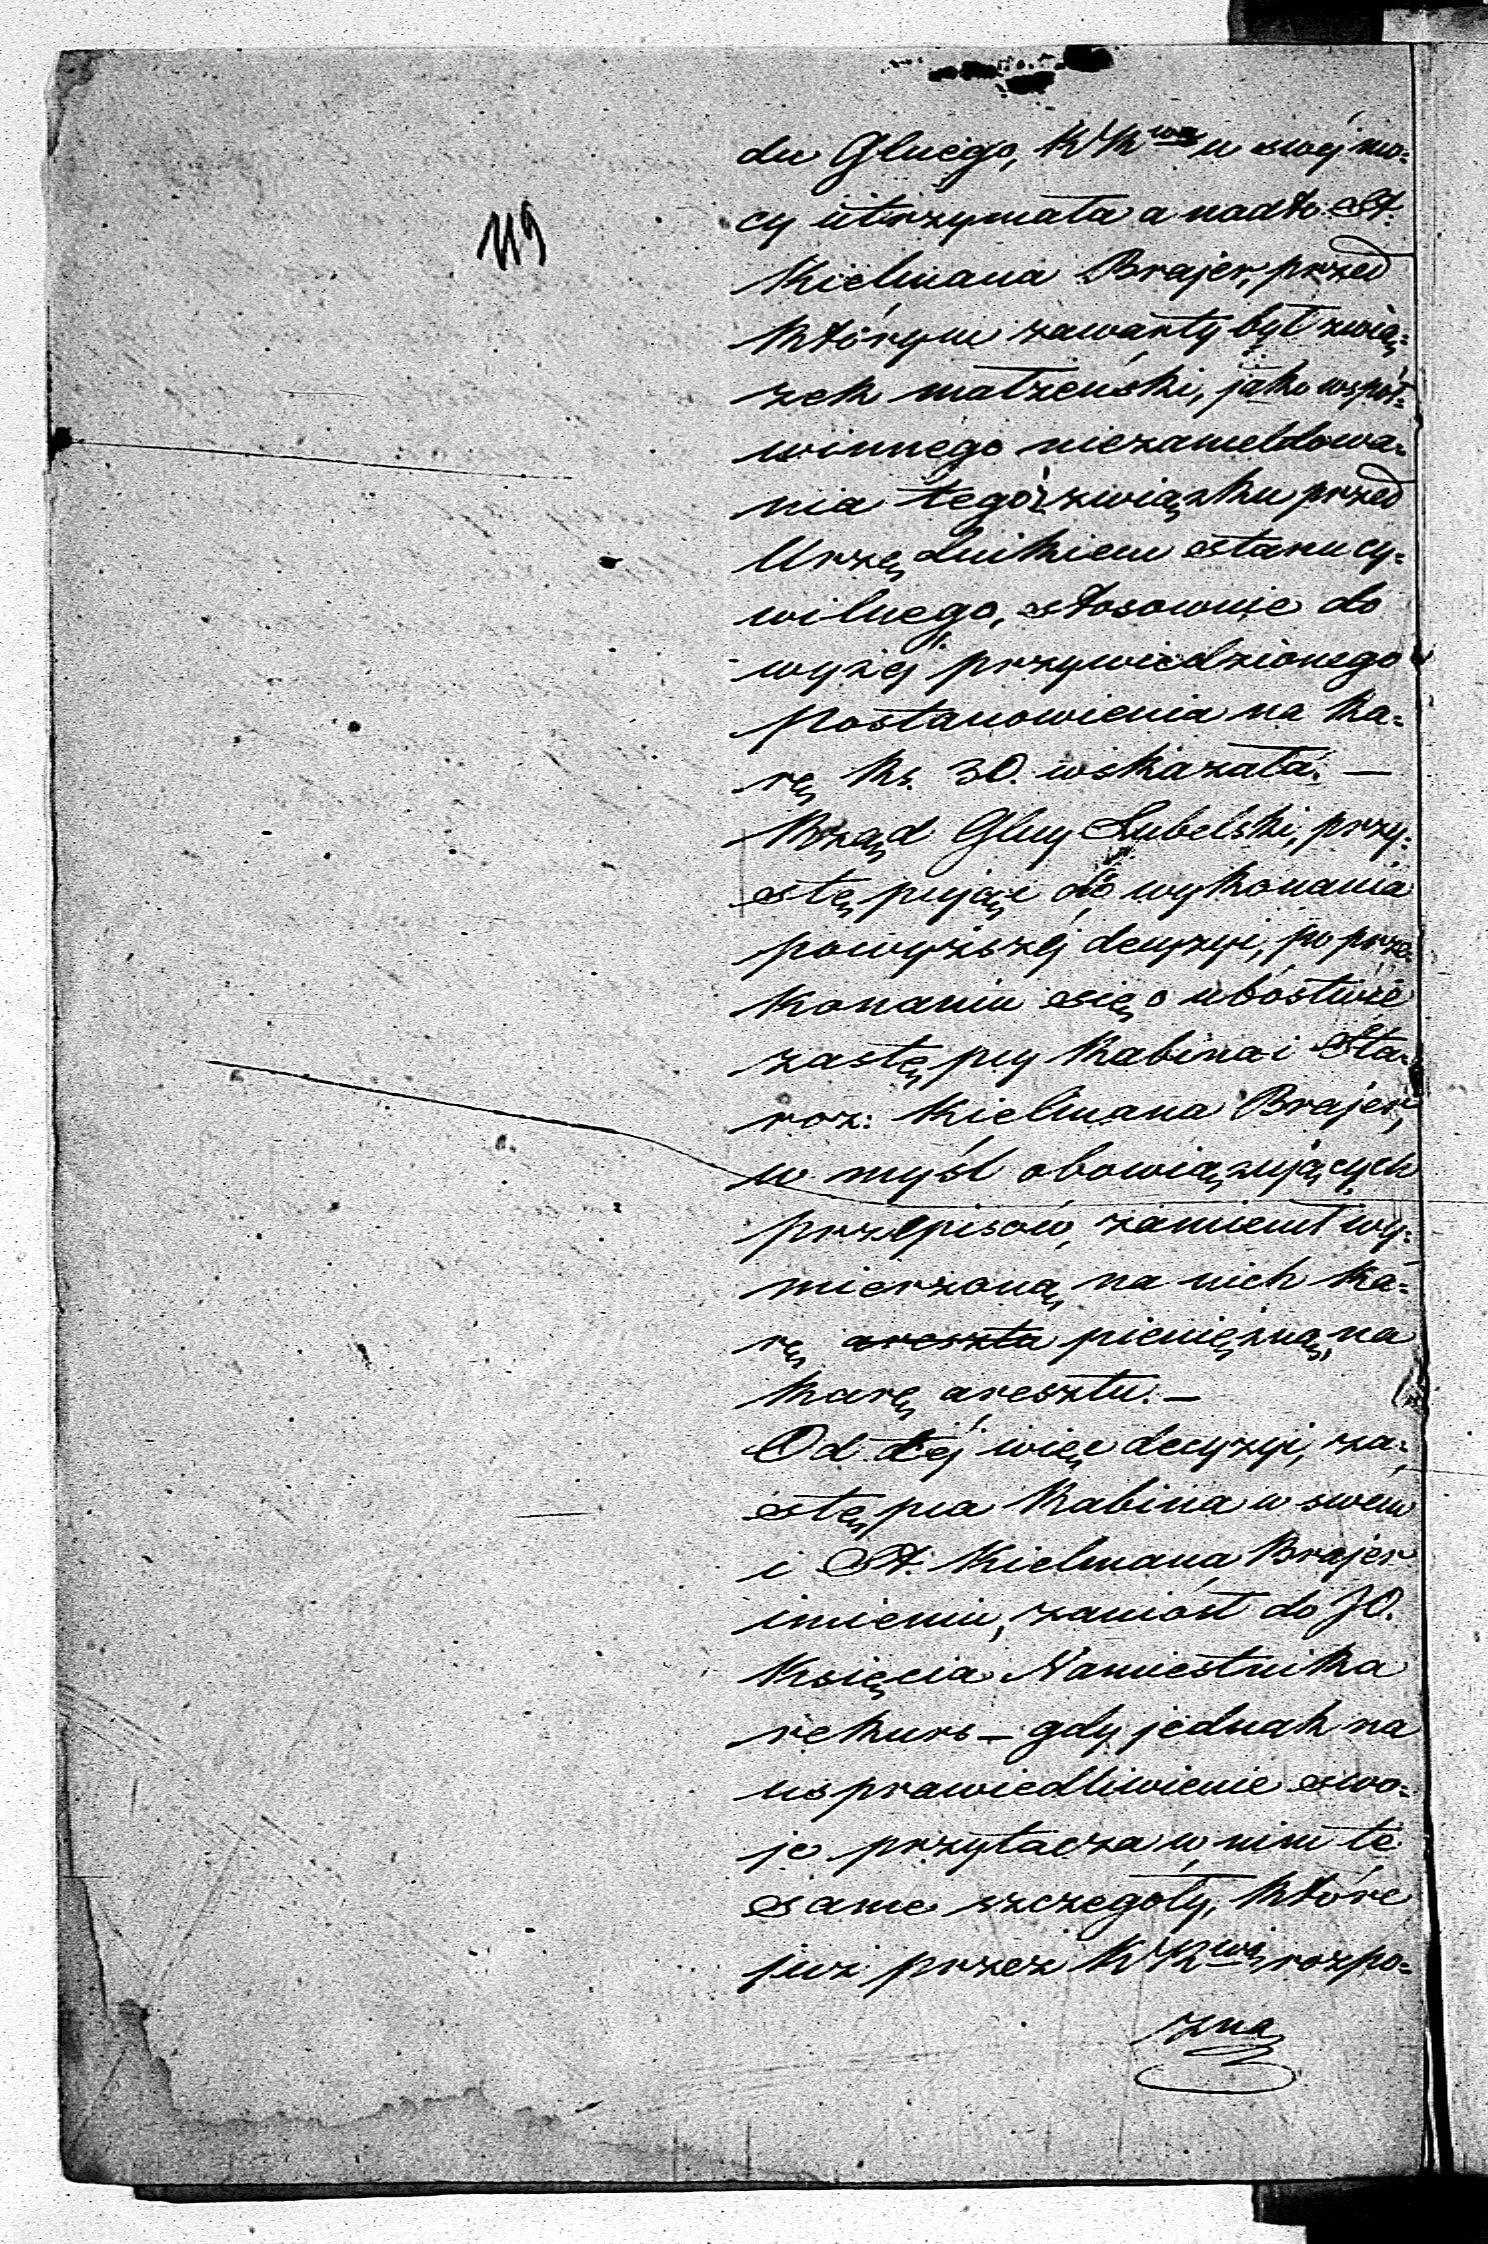 119
du Glnego, KR wa w swéj mo-
cy utrzymała a nadto St.
Kielmana Brajer, przed
którym zawarty był zwią-
zek małżeński, jako współ-
winnego niezameldowa-
nia tegoż związku przed
Urzędnikiem stanu cy-
wilnego, stosownie do
wyżej przywiedzionego
postanowienia na ka-
rę Rs. 30. wskazała. —
Rząd Glny Lubelski, przy-
stępując do wykonania
powyższéj decyzyi, po prze-
konaniu się o ubóstwie
zastępcy Rabina i Sta-
roz: Kielmana Brajer,
w myśl obowiązujących
przepisów, zamienił wy-
mierzoną na nich ka-
rę areszta pieniężną, na
karę aresztu. —
Od téj więc decyzyi, za-
stępca Rabina w swém
i St. Kielmana Brajer
imieniu, zaniósł do JO.
Księcia Namiestnika
rekurs — gdy jednak na
usprawiedliwienie swo-
je przytacza w nim te
same szczegóły, które
już przez KR wą rozpo-
zna